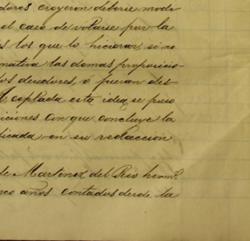 dores creyeron deberse mode
el caso de votarse por la
s los que lo hicieran, si re
nativa las demas proposicio
los deudores, o fueran des
Acoplada esta idea, se puso
iciones con que concluye la
dicada en su redaccion
de Martinez del Rio herm.
nco años contados desde la